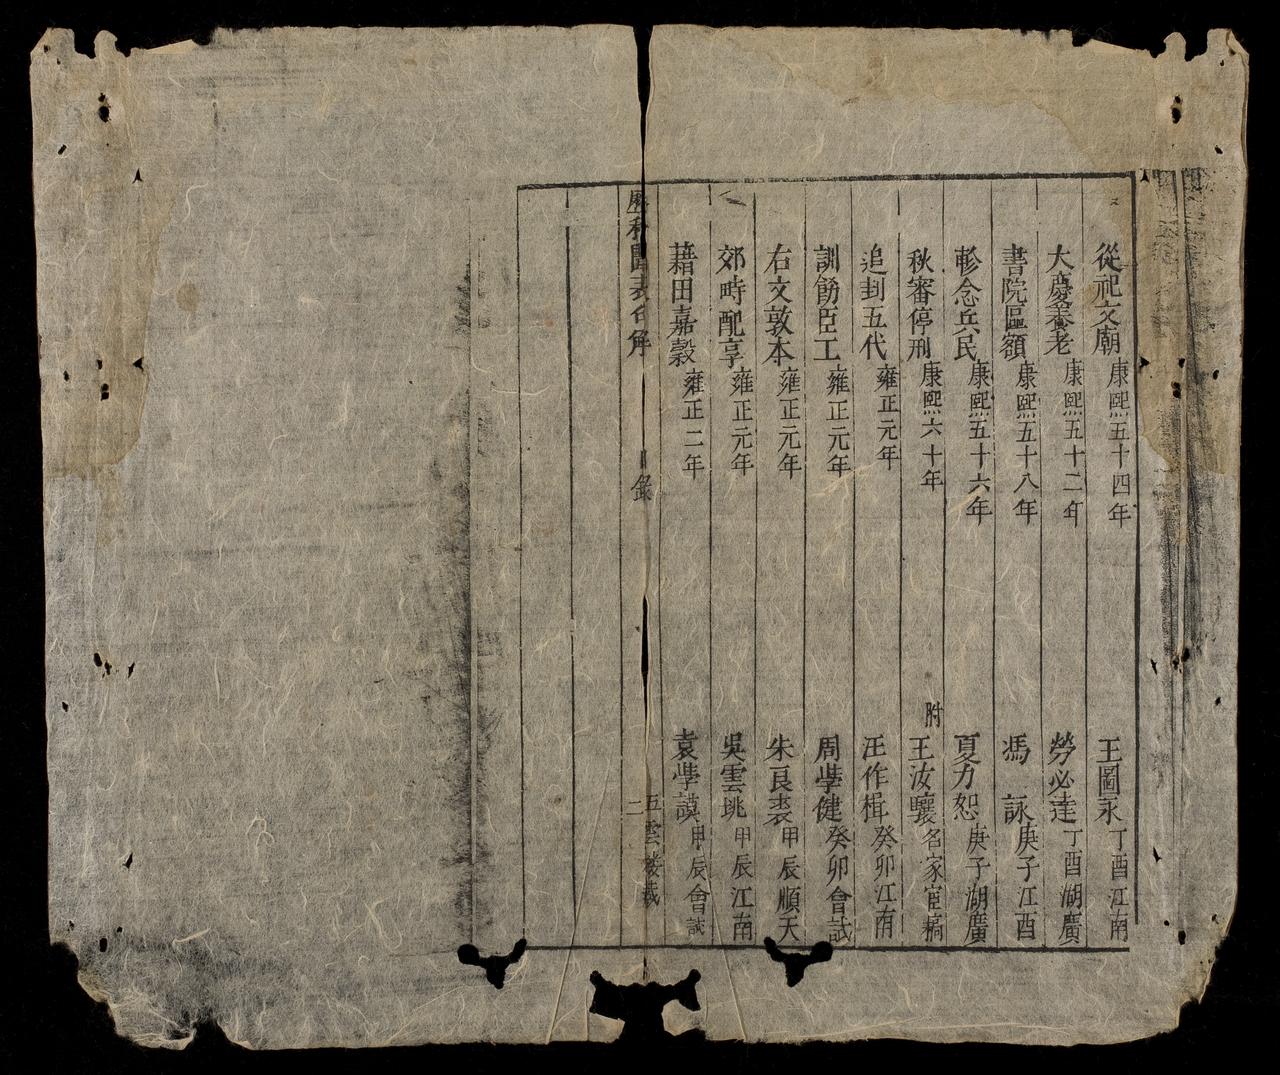 從祀文廟 康熙五十四年 王圖永 丁酉江南
大慶養老 康熙五十二年 勞必達 丁酉湖廣
書院匾額 康熙五十八年 馮詠 庚子江西
軫念兵民 康熙五十六年 夏力恕 庚子湖廣
秋審停刑 康熙六十年 附王汝驤 名家宦稿
追封五代 雍正元年 汪作楫 癸卯江南
訓飭臣工 雍正元年 周學健 癸卯會試
右文敦本 雍正元年 朱良裘 甲辰順天
郊時配享 雍正元年 吳雲眺 甲辰江南
藉田嘉穀 雍正二年 袁學謨 甲辰會試
歷科 表 目錄 二 五雲樓